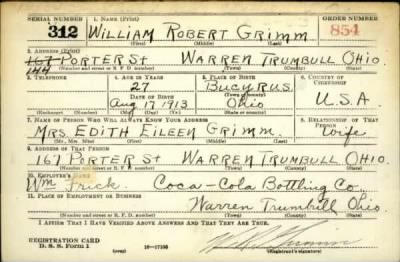 SERIAL NUMBER 1. NAME (Print) ORDER NUMBER
312 WILLIAM ROBERT GRIMM 854
(First) (Middle) (Last)
2. ADDRESS (Print)
167 PORTER St WARREN TRUMBULL OHIO.
144
(Number and street or R. F. D. number) (Town) (County) (State)
3. TELEPHONE 4. AGE IN YEARS 5. PLACE OF BIRTH 6. COUNTRY OF CITIZENSHIP
27 BUCYRUS
DATE OF BIRTH (Town or county)
Aug 17 1913 Ohio U.S.A.
(Exchange) (Number) (Mo.) (Day) (Yr.) (State or country)
7. NAME OF PERSON WHO WILL ALWAYS KNOW YOUR ADDRESS 8. RELATIONSHIP OF THAT PERSON
MRS. EDITH EILEEN GRIMM. Wife
(Mr., Mrs., Miss) (First) (Middle) (Last)
9. ADDRESS OF THAT PERSON
167 PORTER St WARREN TRUMBULL OHIO.
(Number and street or R. F. D. number) (Town) (County) (State)
10. EMPLOYER'S NAME
Wm Frick. Coca-Cola Bottling Co.
11. PLACE OF EMPLOYMENT OR BUSINESS
Warren Trumbull Ohio.
(Number and street or R. F. D. number) (Town) (County) (State)
I AFFIRM THAT I HAVE VERIFIED ABOVE ANSWERS AND THAT THEY ARE TRUE.
REGISTRATION CARD
D. S. S. Form 1 16—17105 (Registrant's signature)